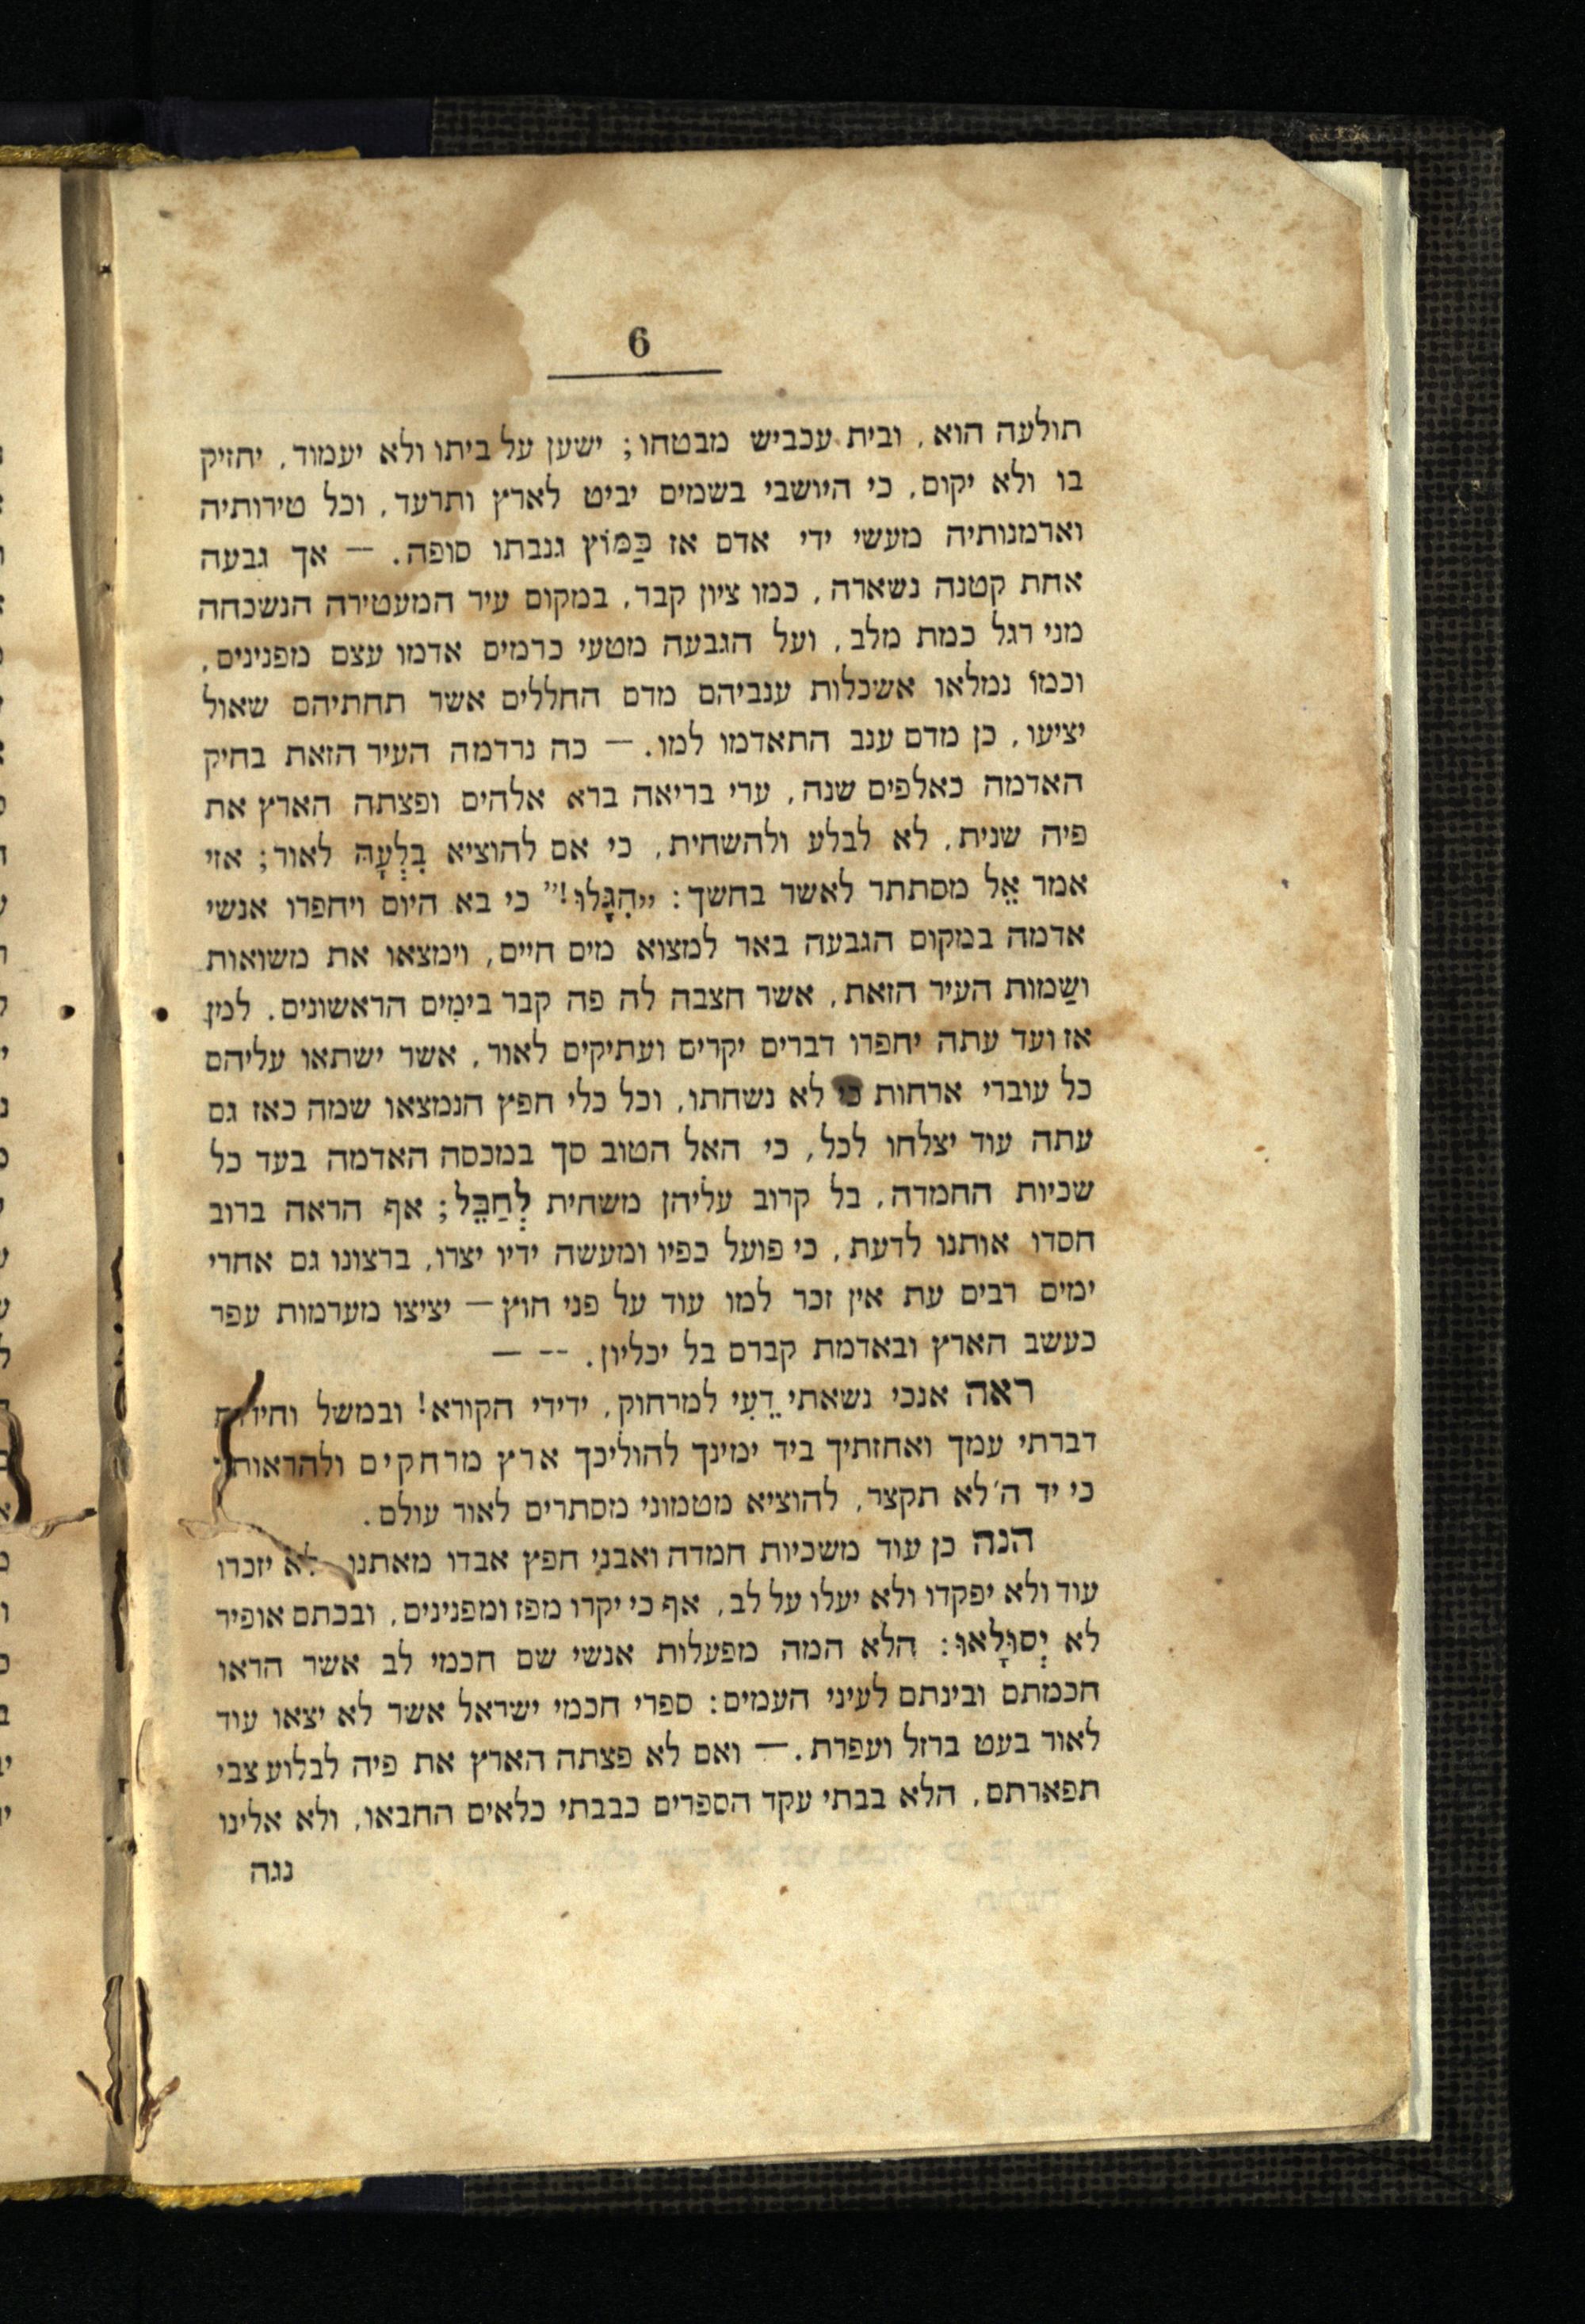 6
תולעה הוא, ובית עכביש מבטחו; ישען על ביתו ולא יעמוד, יחזיק
בו ולא יקום, כי היושבי בשמים יביט לארץ ותרעד, וכל טירותיה
וארמנותיה מעשי ידי אדם אז כַּמּוֹץ גנבתו סופה. — אך גבעה
אחת קטנה נשארה, כמו ציון קבר, במקום עיר המעטירה הנשכחה
מני רגל כמת מלב, ועל הגבעה מטעי כרמים אדמו עצם מפנינים,
וכמו נמלאו אשכלות ענביהם מדם החללים אשר תחתיהם שאול
יציעו, כן מדם ענב התאדמו למו. — כה נרדמה העיר הזאת בחיק
האדמה כאלפים שנה, ערי בריאה ברא אלהים ופצתה הארץ את
פיה שנית, לא לבלע ולהשחית, כי אם להוציא בִּלְעָהּ לאור; אזי
אמר אֵל מסתתר לאשר בחשך: „הִגָּלוּ!” כי בא היום ויחפרו אנשי
אדמה במקום הגבעה באר למצוא מים חיים, וימצאו את משואות
ושַמות העיר הזאת, אשר חצבה לה פה קבר בימִים הראשונים. למן
אז ועד עתה יחפרו דברים יקרים ועתיקים לאור, אשר ישתאו עליהם
כל עוברי ארחות כי לא נשחתו, וכל כלי חפץ הנמצאו שמה כאז גם
עתה עוד יצלחו לכל, כי האל הטוב סך במכסה האדמה בעד כל
שכיות החמדה, בל קרוב עליהן משחית לְחַבֵּל; אף הראה ברוב
חסדו אותנו לדעת, כי פועל כפיו ומעשה ידיו יצרו, ברצונו גם אחרי
ימים רבים עת אין זכר למו עוד על פני חוץ — יציצו מערמות עפר
כעשב הארץ ובאדמת קברם בל יכליון. -- —
ראה אנכי נשאתי דֵעִי למרחוק, ידידי הקורא! ובמשל
דברתי עמך ואחזתיך ביד ימינך להוליכך ארץ מרחקים
כי יד ה' לא תקצר, להוציא מטמוני מסתרים לאור עולם.
הנה כן עוד משכיות חמדה ואבני חפץ אבדו מאתנו לא יזכרו
עוד ולא יפקדו ולא יעלו על לב, אף כי יקרו מפז ומפנינים, ובכתם אופיר
לא יְסוּלָאוּ: הלא המה מפעלות אנשי שם חכמי לב אשר הראו
חכמתם ובינתם לעיני העמים: ספרי חכמי ישראל אשר לא יצאו עוד
לאור בעט ברזל ועפרת. — ואם לא פצתה הארץ את פיה לבלוע צבי
תפארתם, הלא בבתי עקד הספרים כבבתי כלאים החבאו, ולא אלינו
נגה